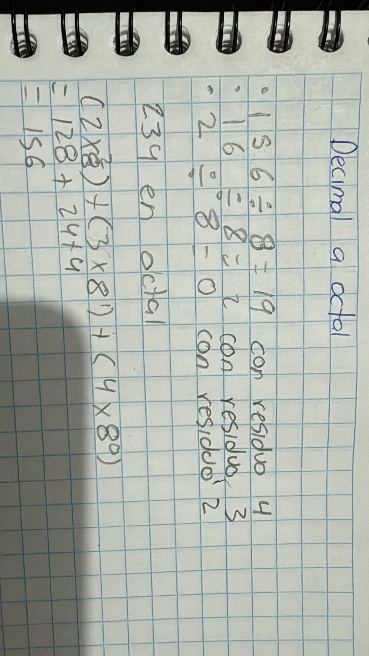 Decimal a octal
· 156 ÷ 8 = 19 con residuo 4
· 16 ÷ 8 = 2 con residuo 3
· 2 ÷ 8 = 0 con residuo 2
234 en octal
(2x8²) + (3x8¹) + (4x8⁰)
= 128 + 24+4
= 156